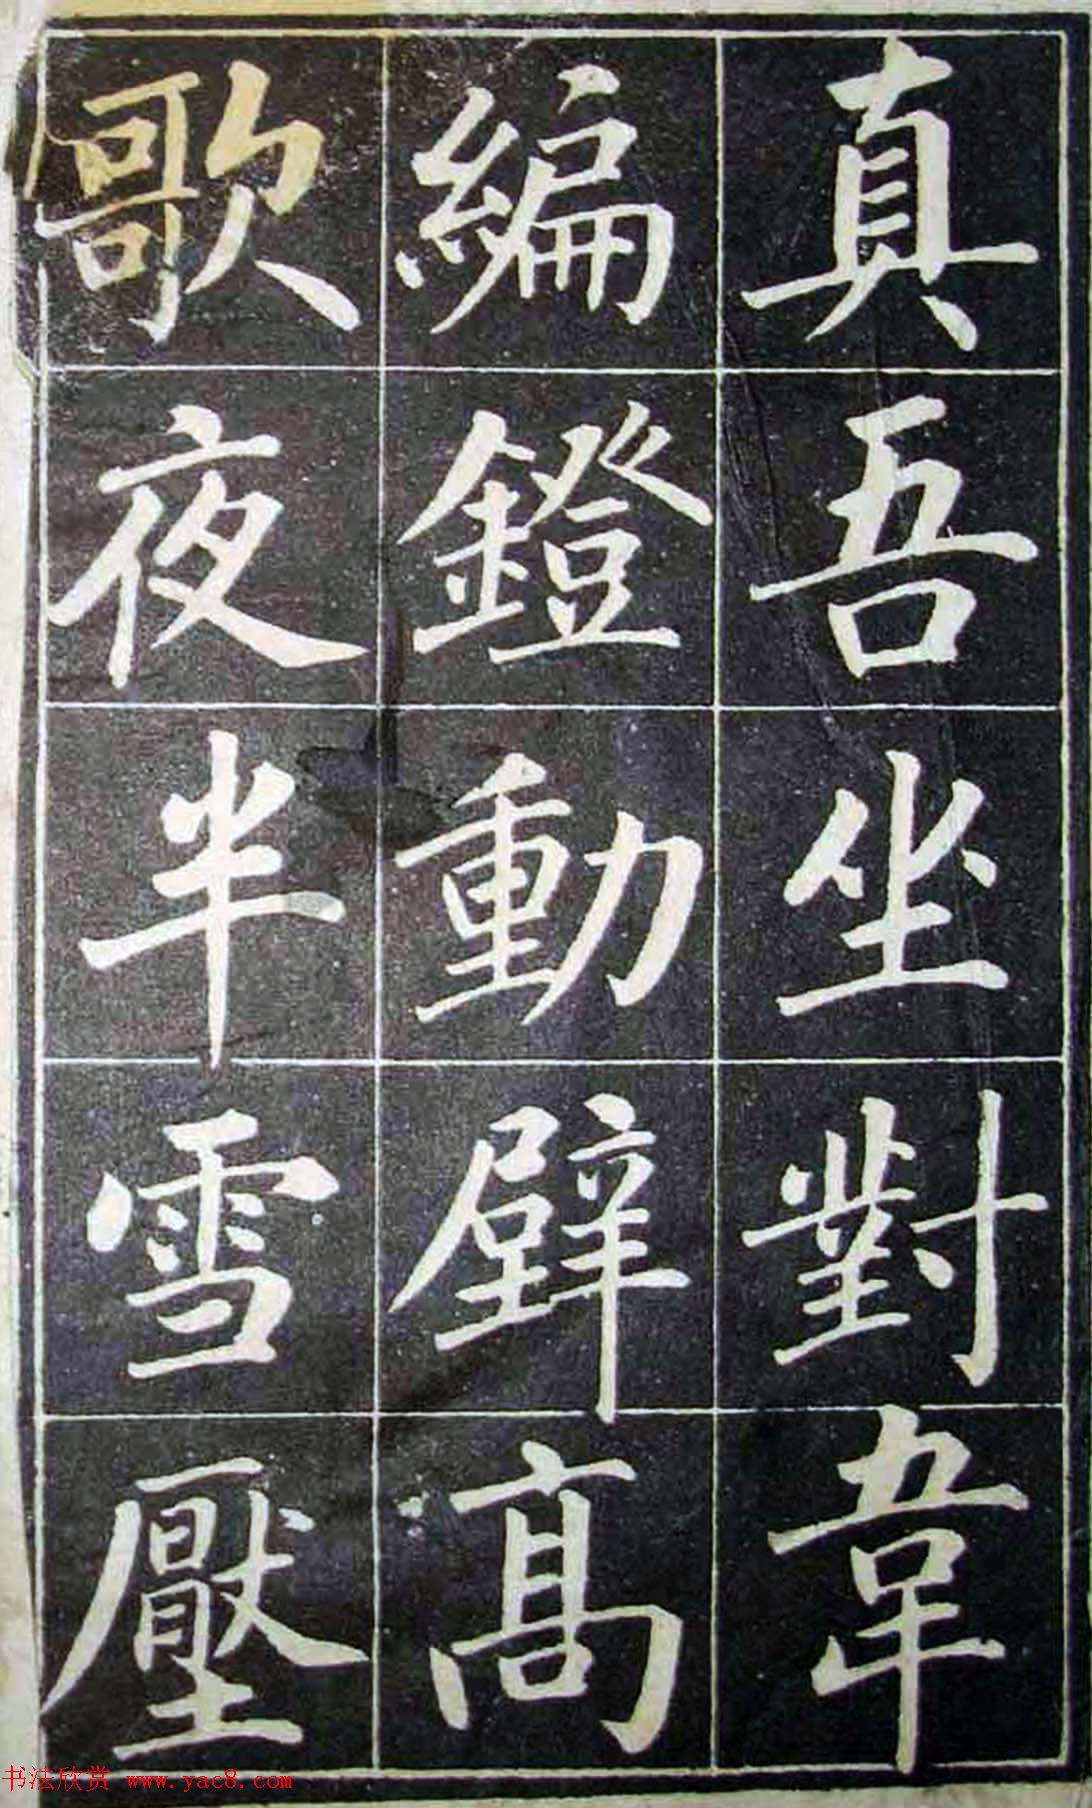 真吾坐對韋
編鐙動壁高
歌夜半雪壓
书法欣赏 www.yac8.com